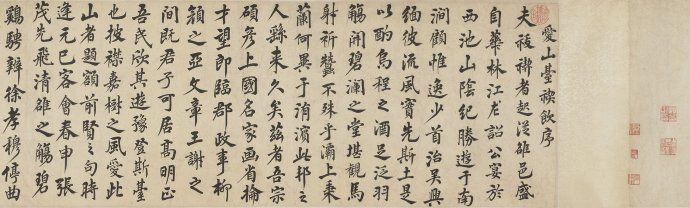 愛山臺禊飲序
夫祓禊者起從雒邑盛
自華林江左詔公宴於
西池山陰紀勝遊于南
澗顧惟逸少首治吳興
緬彼流風寔先斯土是
以酌烏程之酒足泛羽
觴開碧瀾之堂堪觀馬
射祈蠶不殊乎灞上秉
蘭何異于洧濱此邦之
人繇來久矣茲者吾宗
碩彥上國名家画省掄
才望即臨郡政事柳
顏之亞文章王謝之
間既君子可居高明正
吾民欣其遊豫登斯臺
也披襟嘉樹之風愛此
山者題額前賢之句時
逢元巳客會春申張
茂先飛清雒之觴碧
鷄騁辯徐孝穆停曲